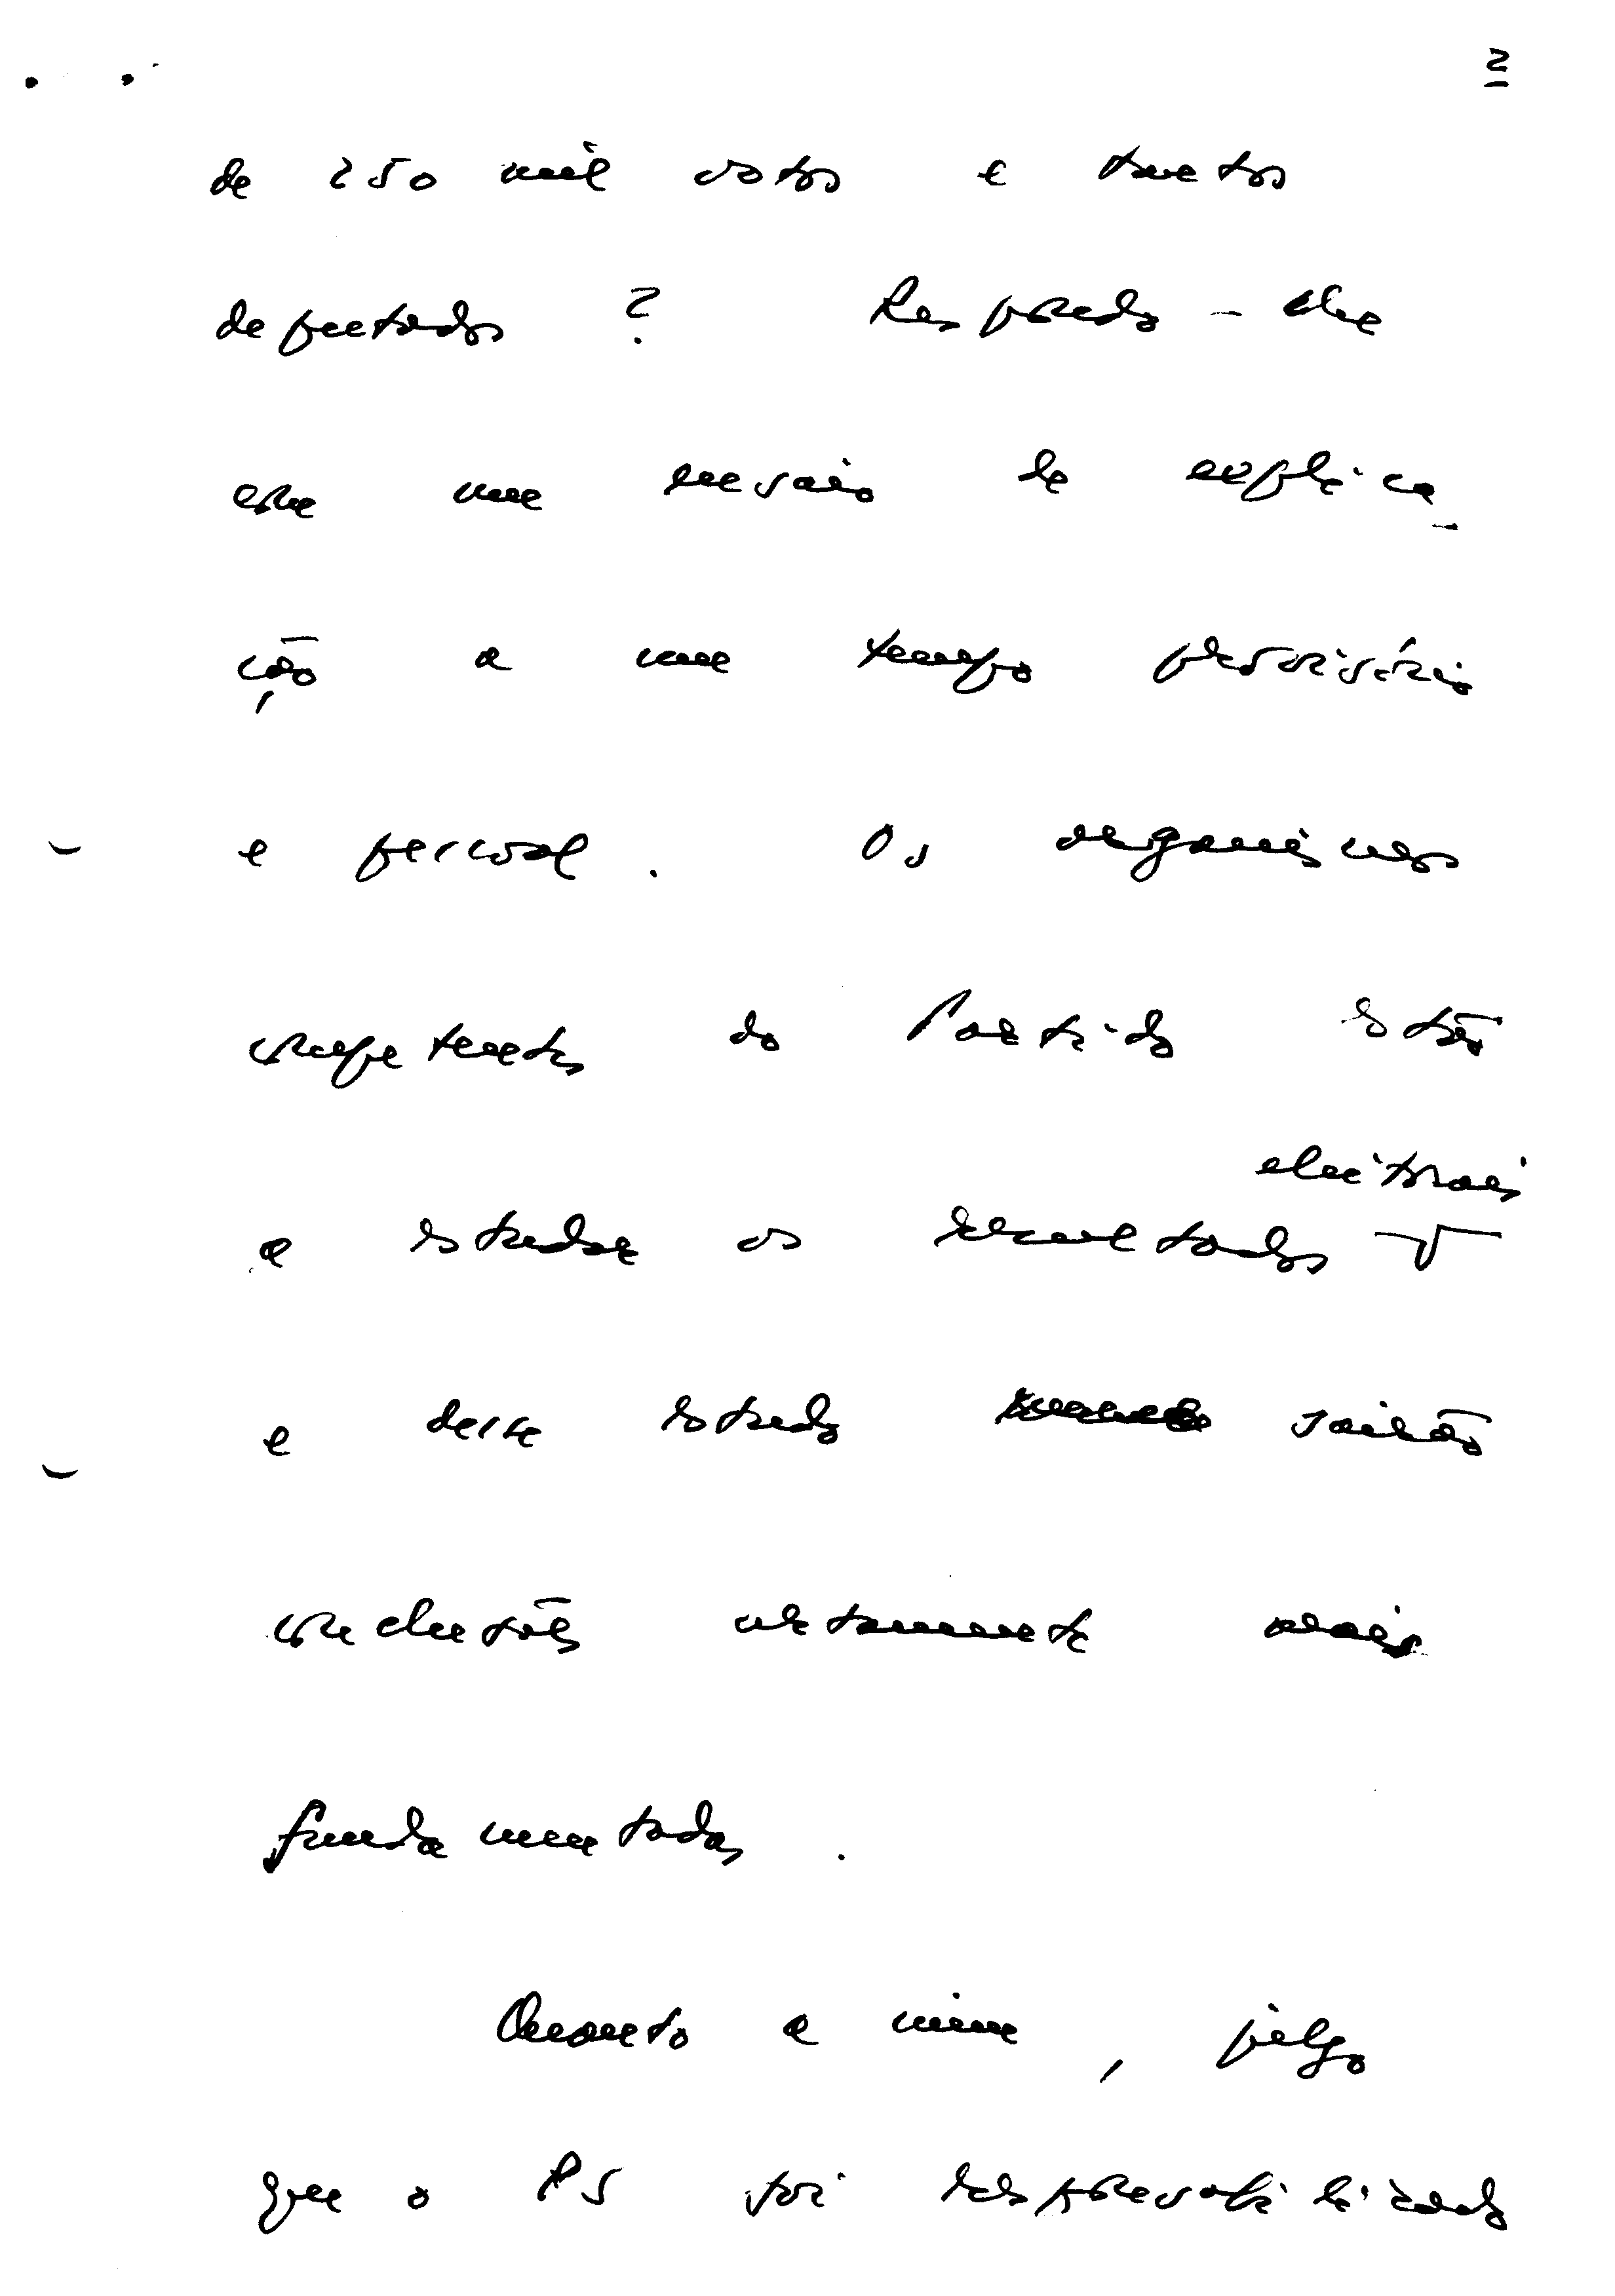 2
de 250 mil votos e tantos
deputados ? Respondo-lhe
com um ensaio de explica-
ção a um tempo provisório
e pessoal. Os organismos
competentes do Partido estão
eleitorais
a estudar os resultados
e desse estudo sairão
conclusões certamente mais
fundamentadas.
Quanto a mim, julgo
que o PS foi responsabilizado